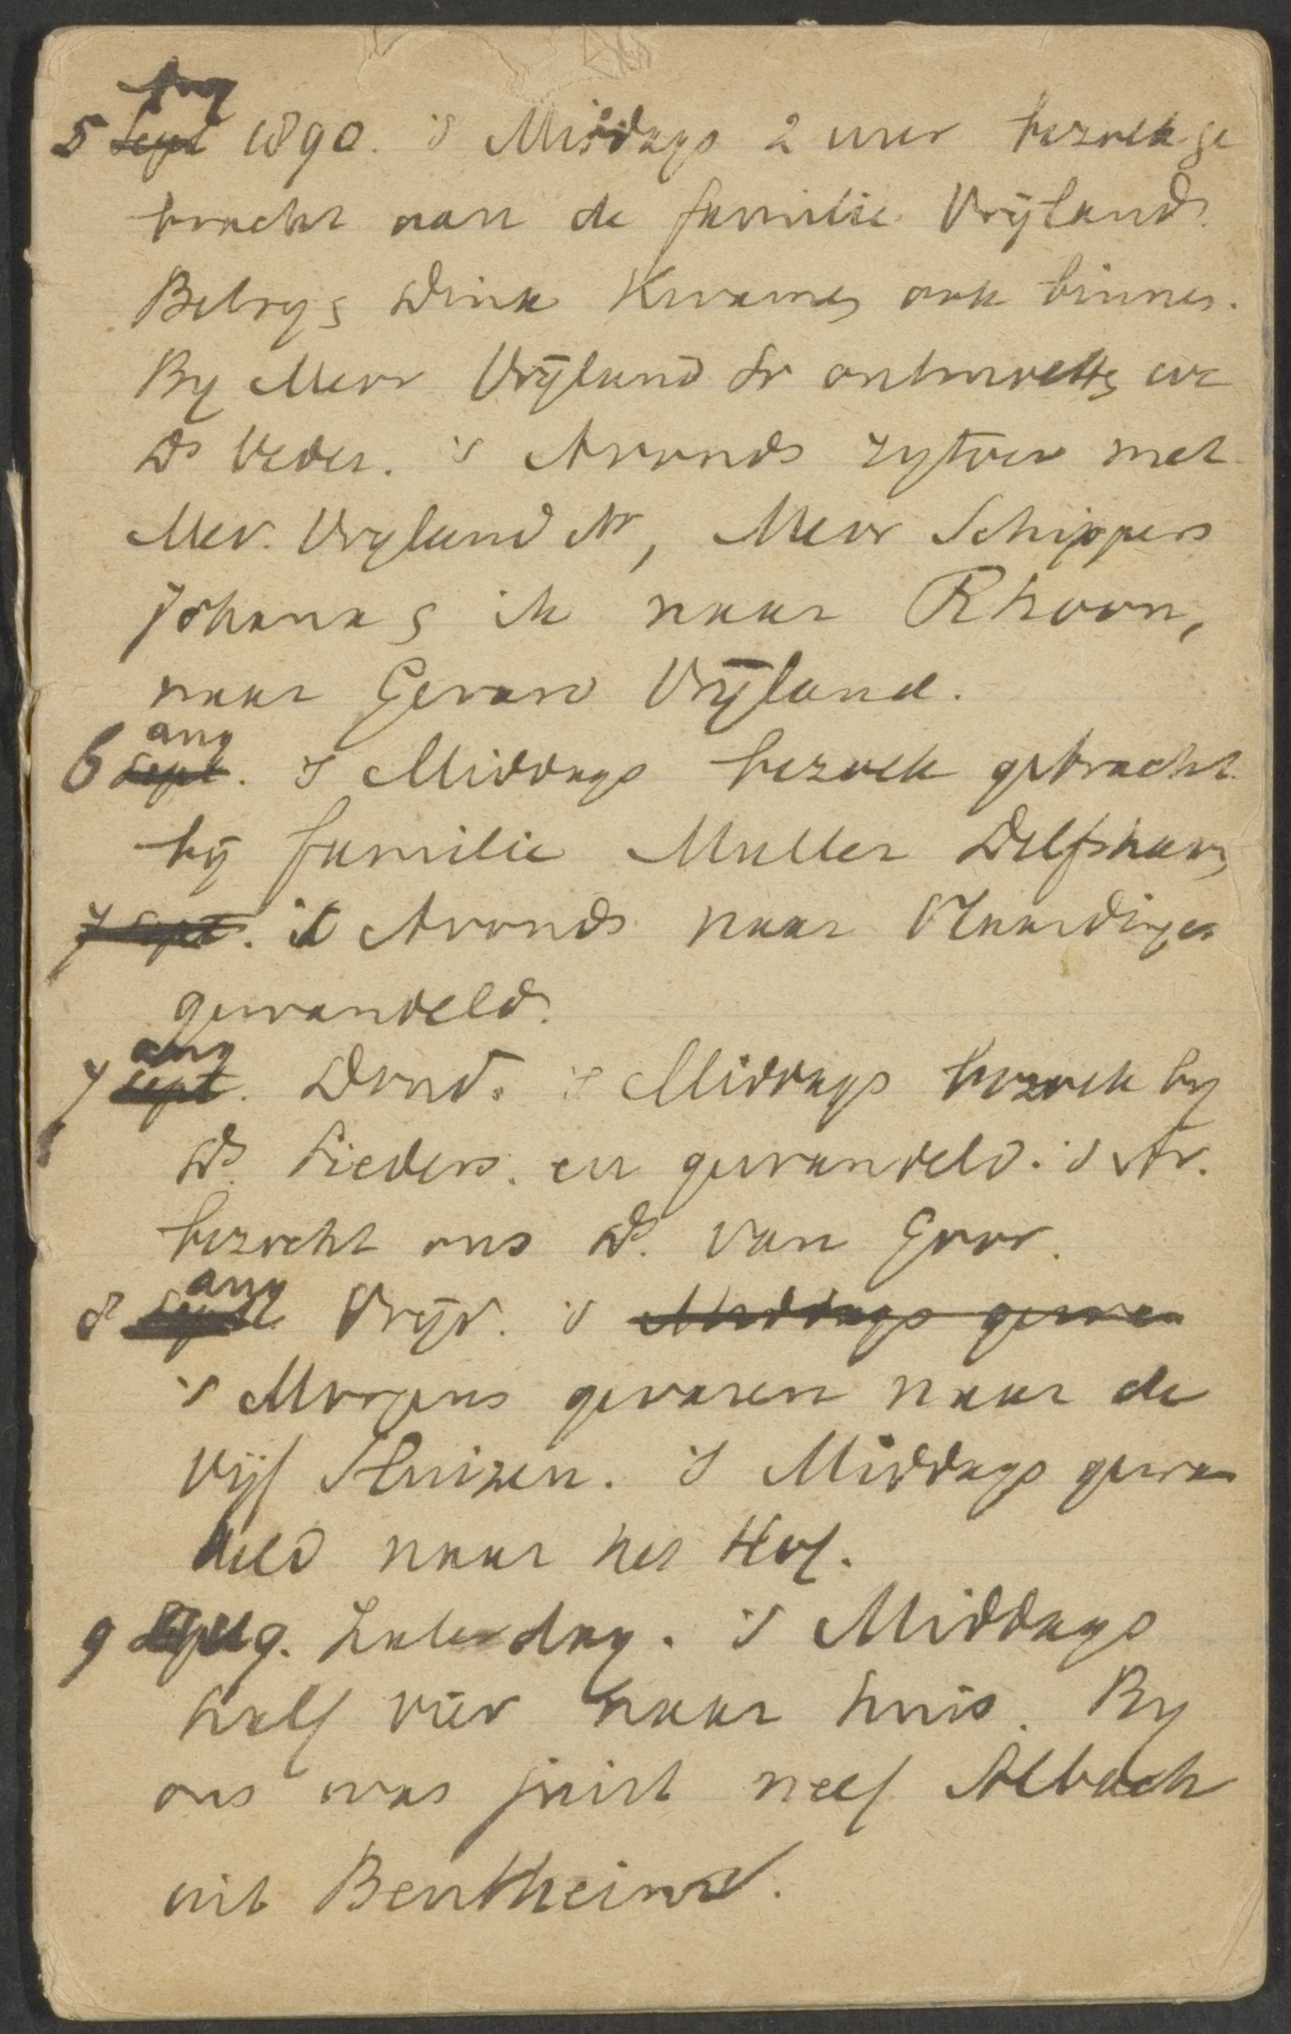 Aug
5 Sept 1890. 's Middags 2 uur bezoek ge
bracht aan de familie Vrijland.
Betsy & Dina kwamen ook binnen.
By Mevr Vrijland Sr ontmoetten we
Ds Veder. 's Avonds rytoer met
Mev. Vryland Jr, Mevr Schippers
Johana & ik naar Rhoon,
naar Gerard Vrijland.
aug
6 Sept. 's Middags bezoek gebracht
bij familie Muller Delfshaven
7 Sept. 's Avonds naar Vlaardingen
gewandeld.
aug
7 Sept. Dond. 's Middags bezoek by
Ds. Sieders. en gewandeld. 's Av.
bezocht ons Ds. van Goor.
aug
8 Sept. Vrijd. 's Middags gewan
's Morgens gevaren naar de
Vijf Sluizen. 's Middags gewan
deld naar het Hof.
9 Aug. Zaterdag. 's Middags
half vier naar huis. By
ons was juist neef Albach
uit Bentheim.